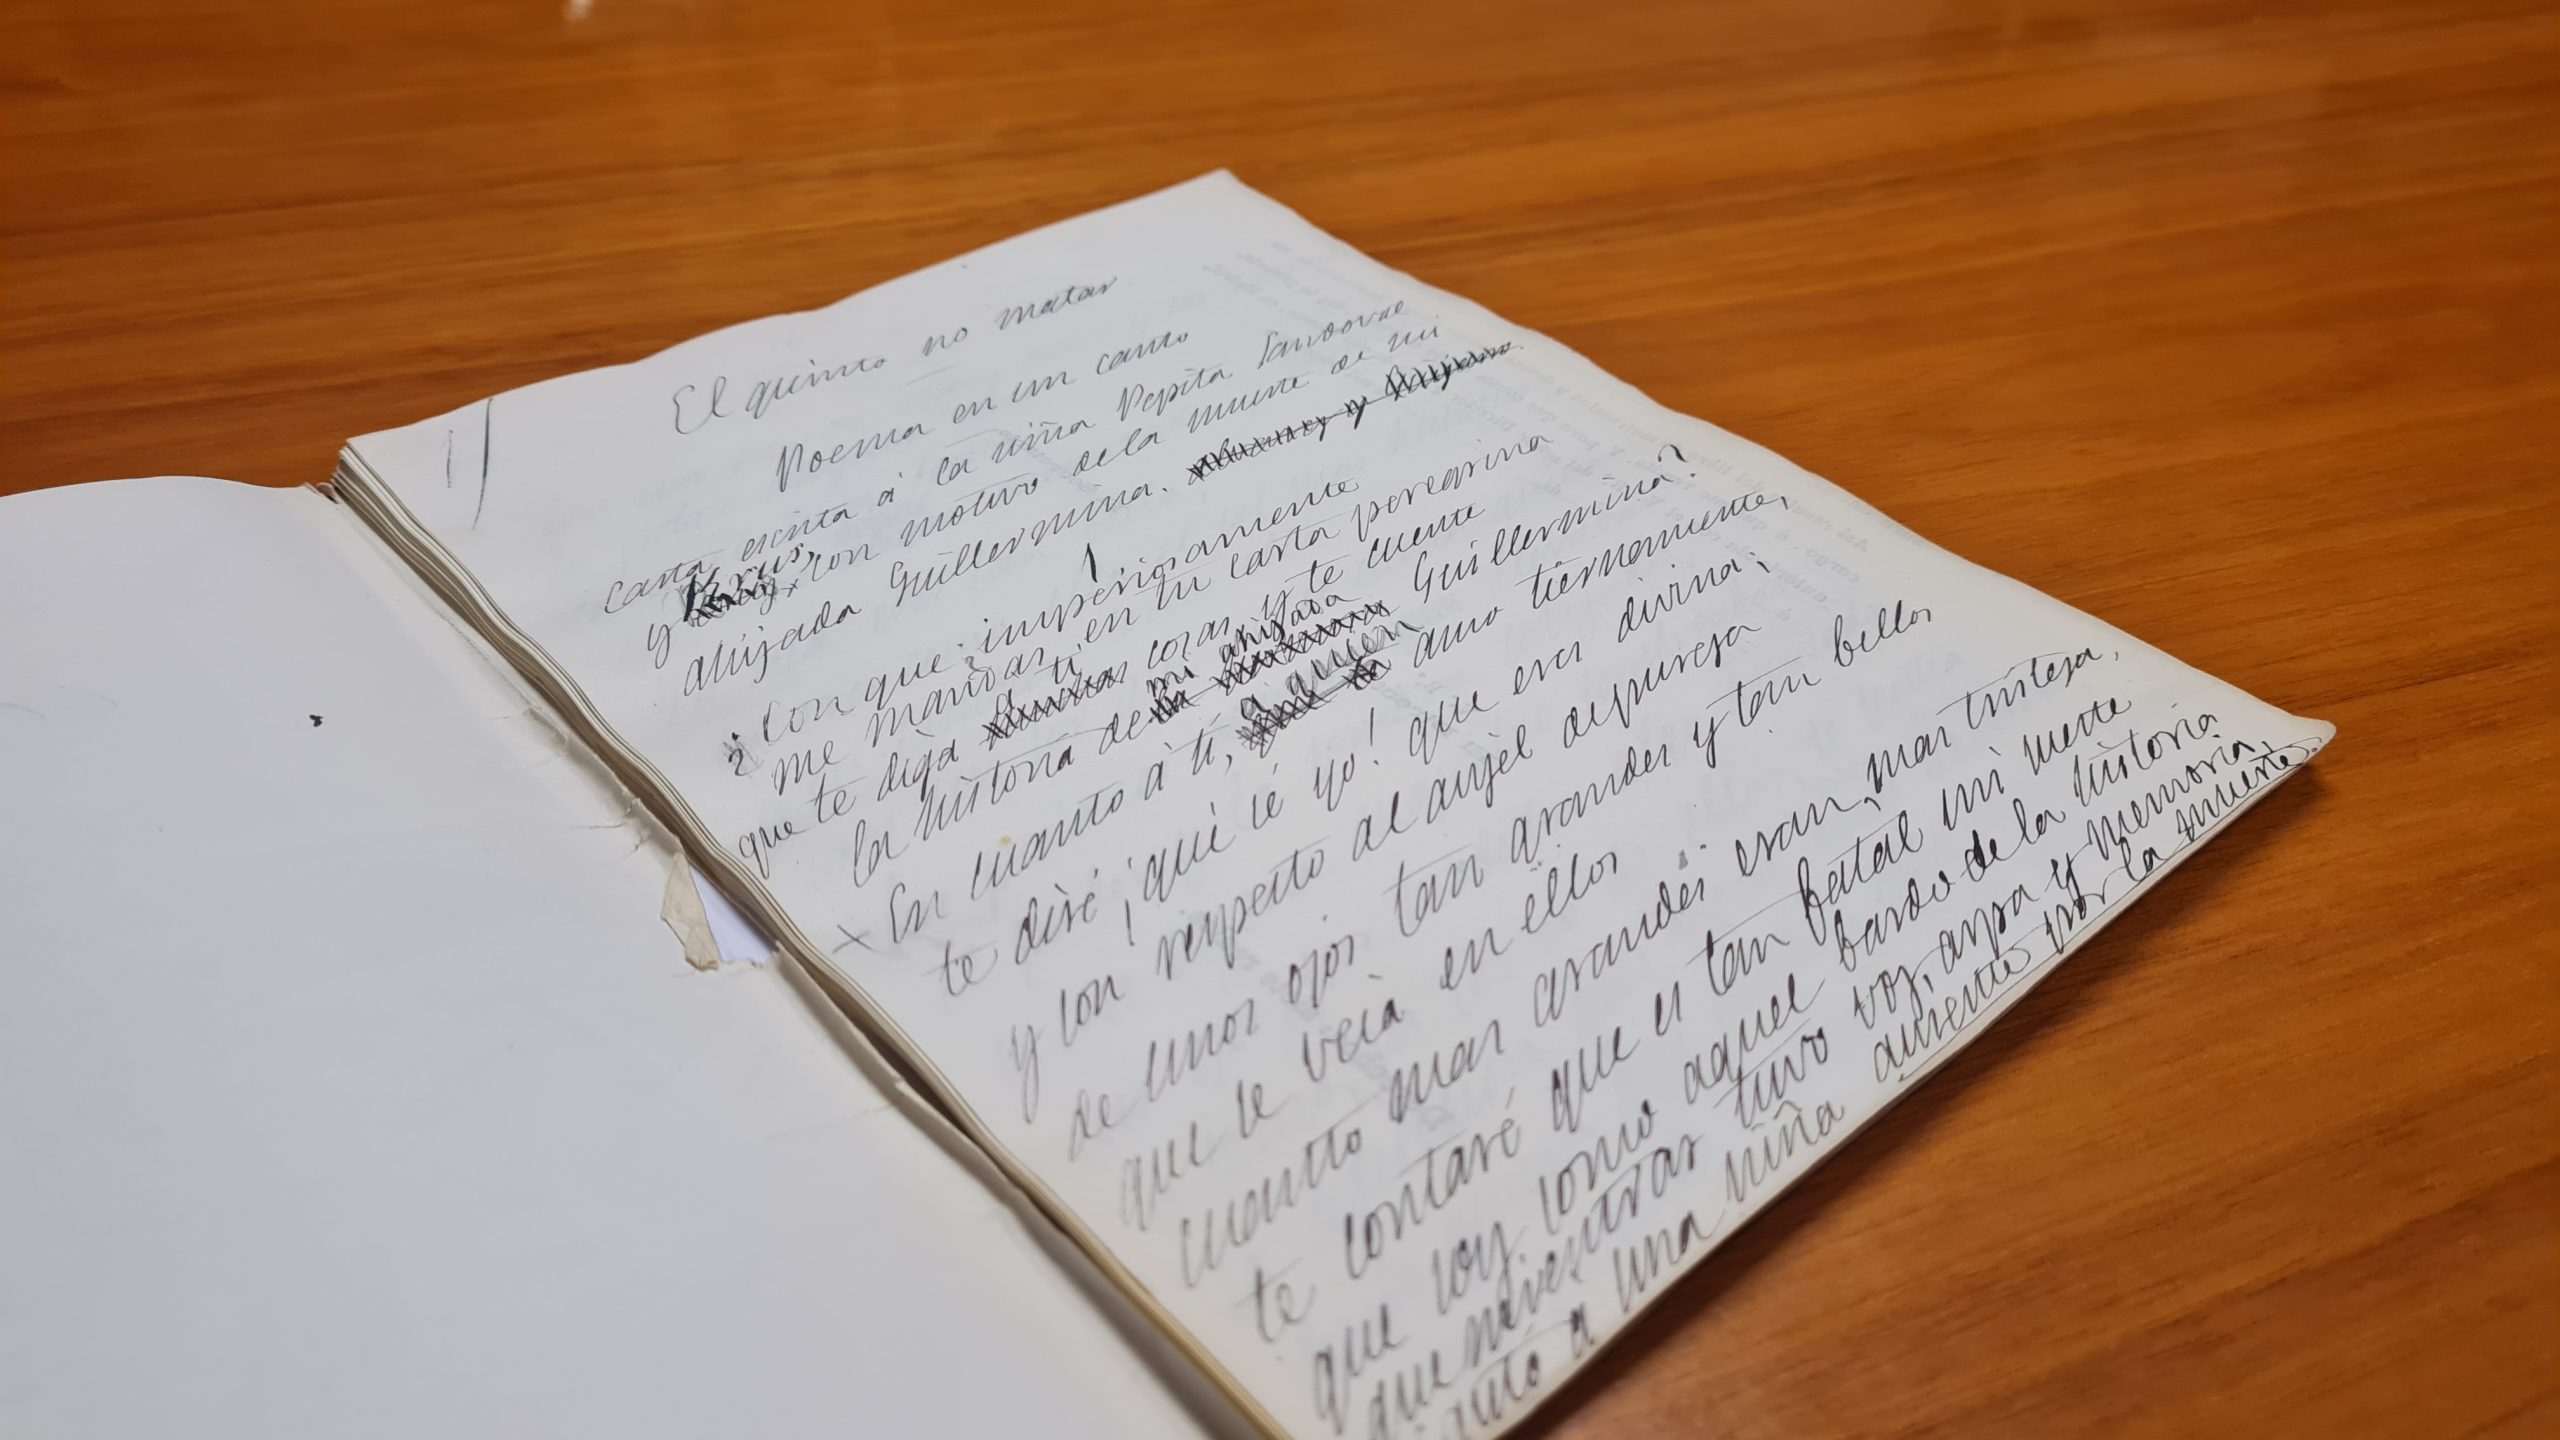 1)
El quinto no matar
Poema en un canto
Carta escrita á la niña Pepita Sandoval
y con motivo de la muerte de mi
ahijada Guillermina.
1
¿Con que imperiosamente
me mandas en tu carta peregrina
que te diga á ti cosas y te cuente
la historia de mi ahijada Guillermina?
En cuanto á ti, á quien amo tiernamente,
te diré ¡qué sé yo! que eres divina;
y con respecto al anjel de pureza
de unos ojos tan grandes y tan bellos
que se veia en ellos
cuanto mas grandes eran, mas tristeza,
te contaré que es tan fatal mi suerte
que soy como aquel bardo de la historia
que mientras tuvo voz, arpa y memoria,
cantó a una niña ausente por la muerte.